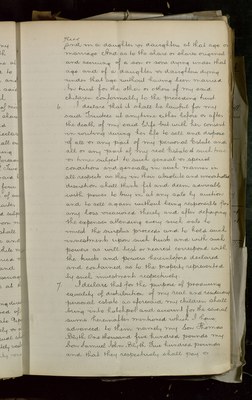 their
and on a daughter or daughters at that age or
marriage And as to the share or shares original
and accruing of a son or sons dying under that
age and of a daughter or daughters dying
under that age without having been married
In trust for the other or others of my said
children conformably to the preceding trust
6. I declare that it shall be lawful for my
said Trustees at anytime either before or after
the death of my said Wife but with her consent
in writing during her life to sell and dispose
of all or any part of my personal Estate and
all or any part of my real Estate and
or hereditaments to such general or special
conditions and generally in such manner in
all respects as they in their absolute and uncontrolled
discretion shall think fit and deem advisable
with power to buy in at any sale by auction
and to sell again without being responsible for
any loss occasioned thereby and after defraying
the expenses attending every such sale to
invest the surplus proceeds and to hold such
investments upon such trusts and with such
powers as will best or nearest correspond with
the trusts and powers hereinbefore declared
and contained as to the property represented
by such investments respectively
7. I declare that for the purpose of preserving
equality of distribution of my real and residuary
personal estate as aforesaid my children shall
bring into hotchpot and account for the several
sums hereinafter mentioned which I have
advanced to them namely my Son Thomas
Blyth One thousand five hundred pounds my
Son Samuel Blyth Five hundred pounds
and that they respectively shall pay or